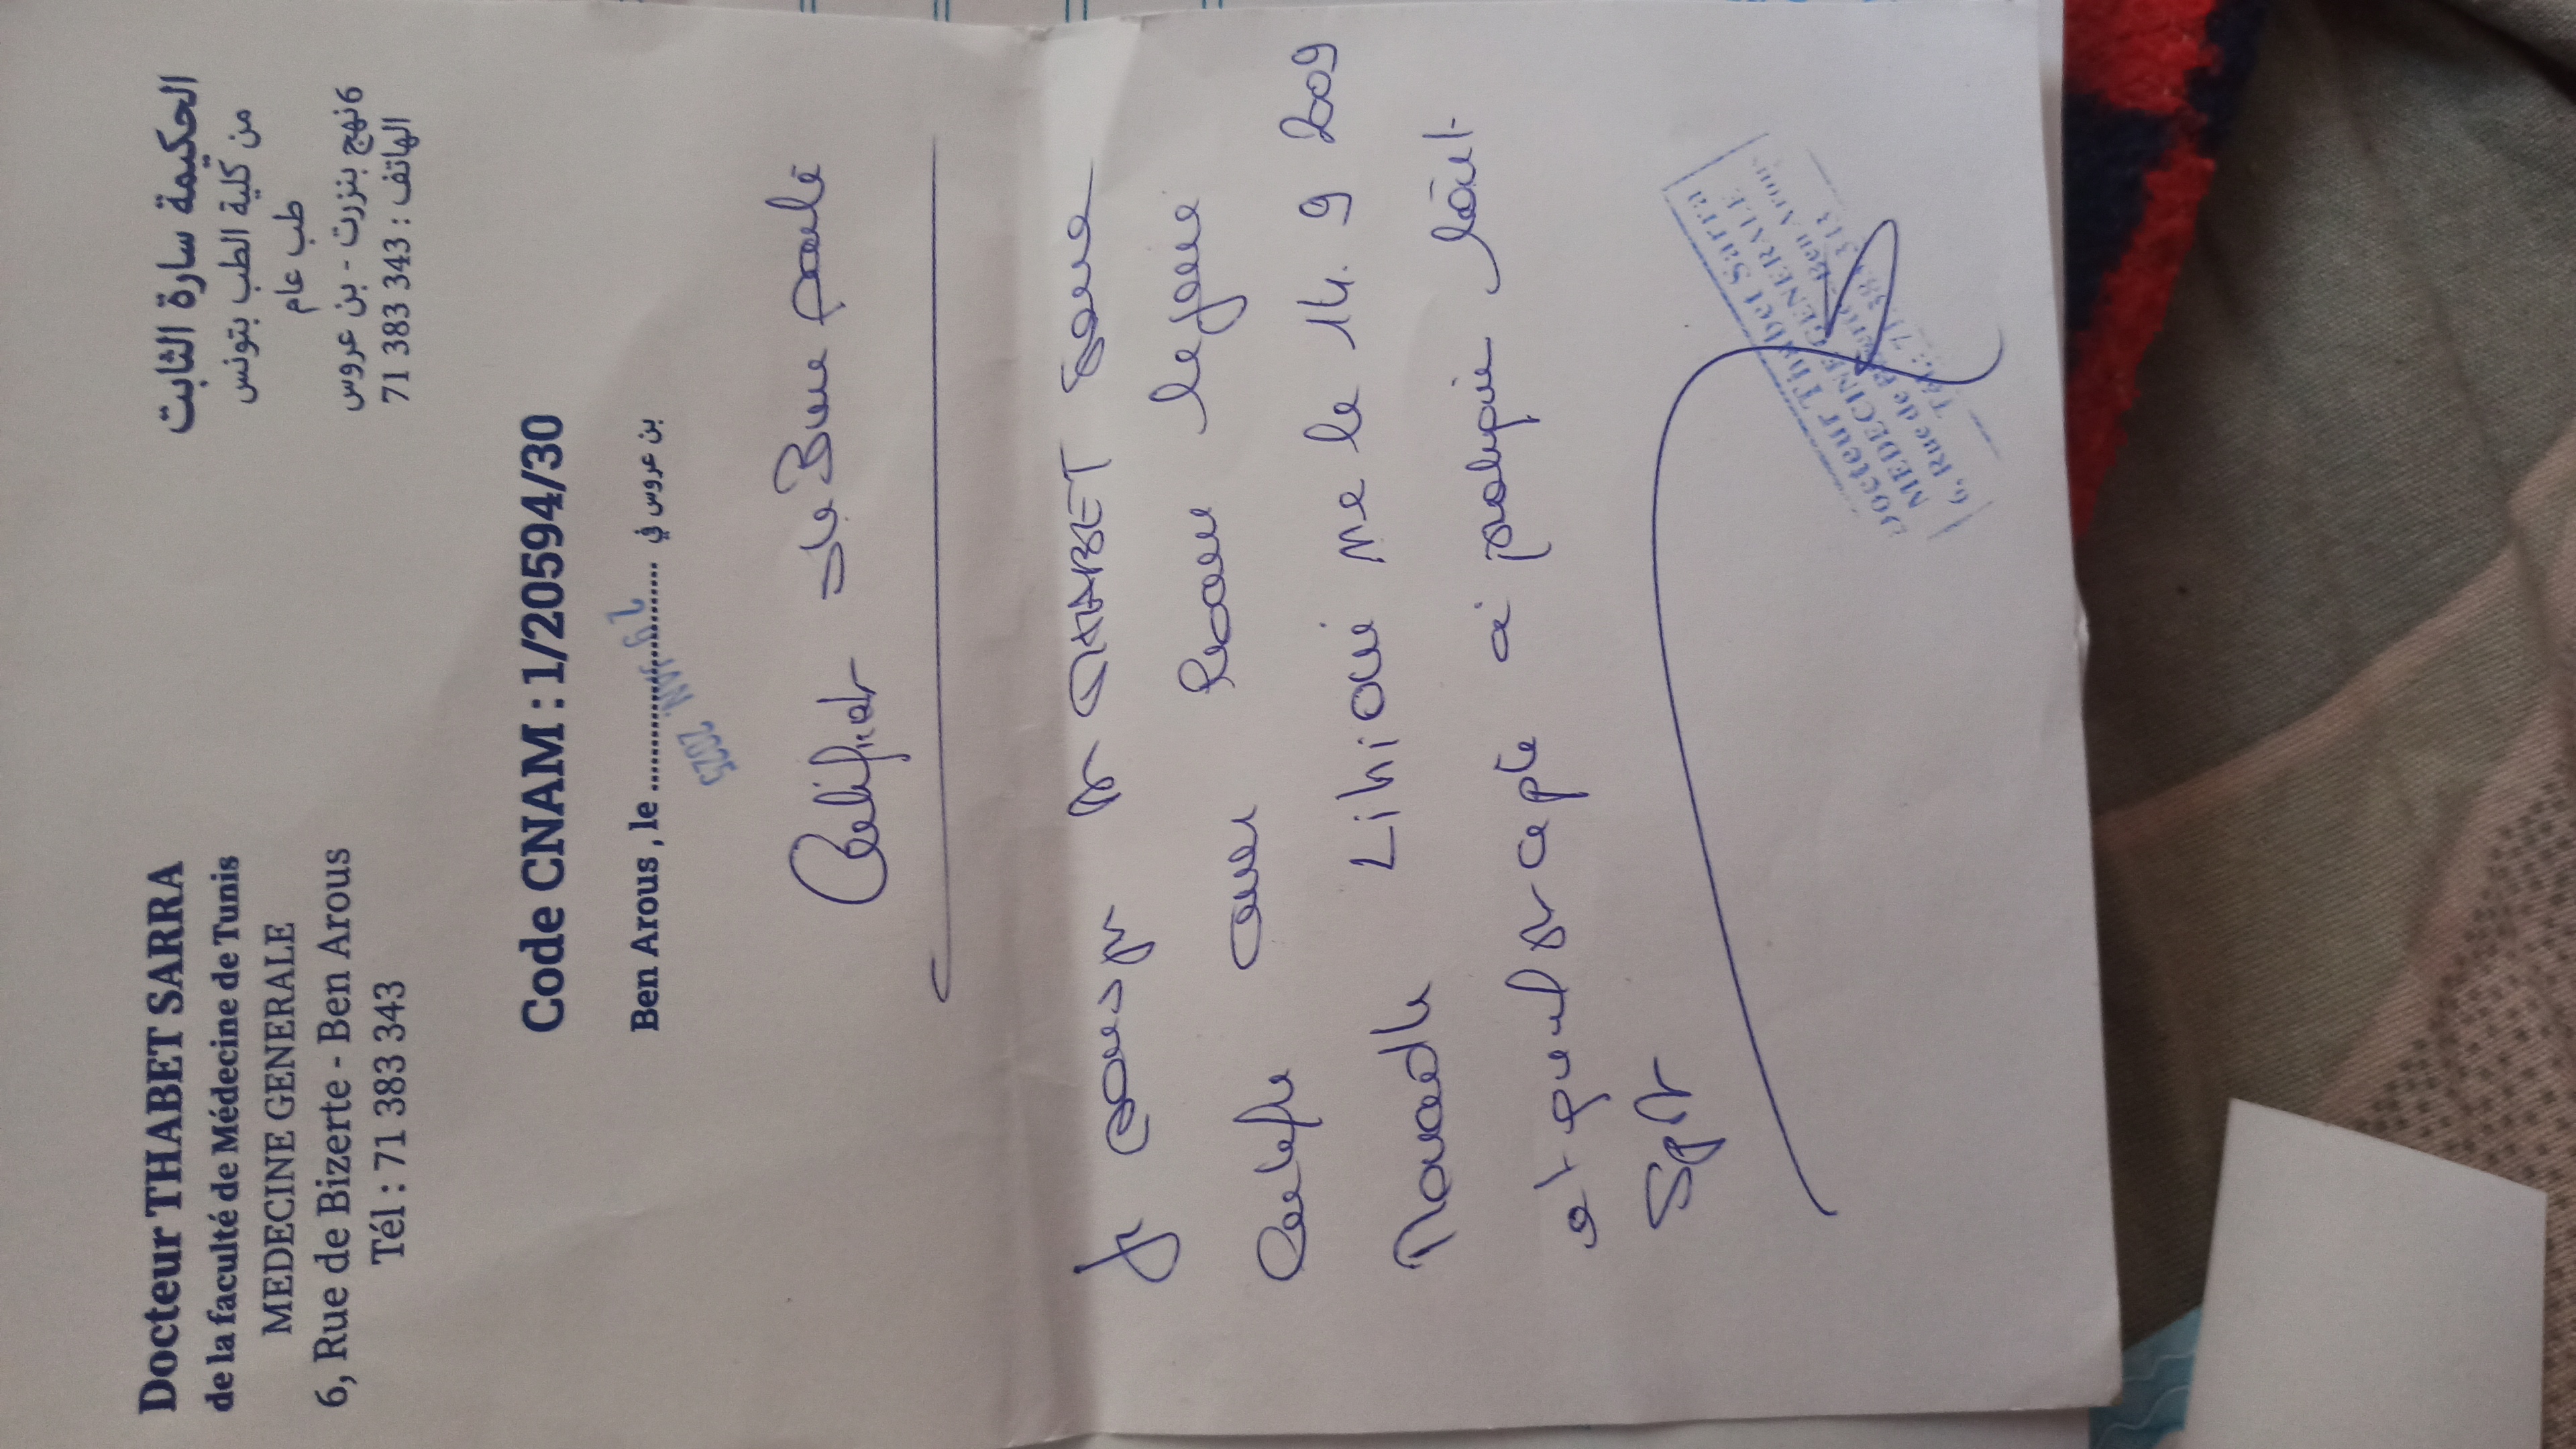 Docteur THABET SARRA
de la faculté de Médecine de Tunis
MEDECINE GENERALE
6, Rue de Bizerte - Ben Arous
Tél : 71 383 343
الحكيمة سارة الثابت
من كلية الطب بتونس
طب عام
6 نهج بنزرت - بن عروس
الهاتف : 343 383 71
Code CNAM : 1/20594/30
Ben Arous , le .................... بن عروس في
JAN. 2025
Certificat de Bonne santé
Je soussigné Dr THABET Sarra
certifie avoir examiné
Lihioui né le 14. 9 2009
et qu'il est apte à pratiquer
Sport
Docteur Thabet Sarra
MEDECINE GENERALE
6, Rue de Bizerte - Ben Arous
Tél.: 71 383 343